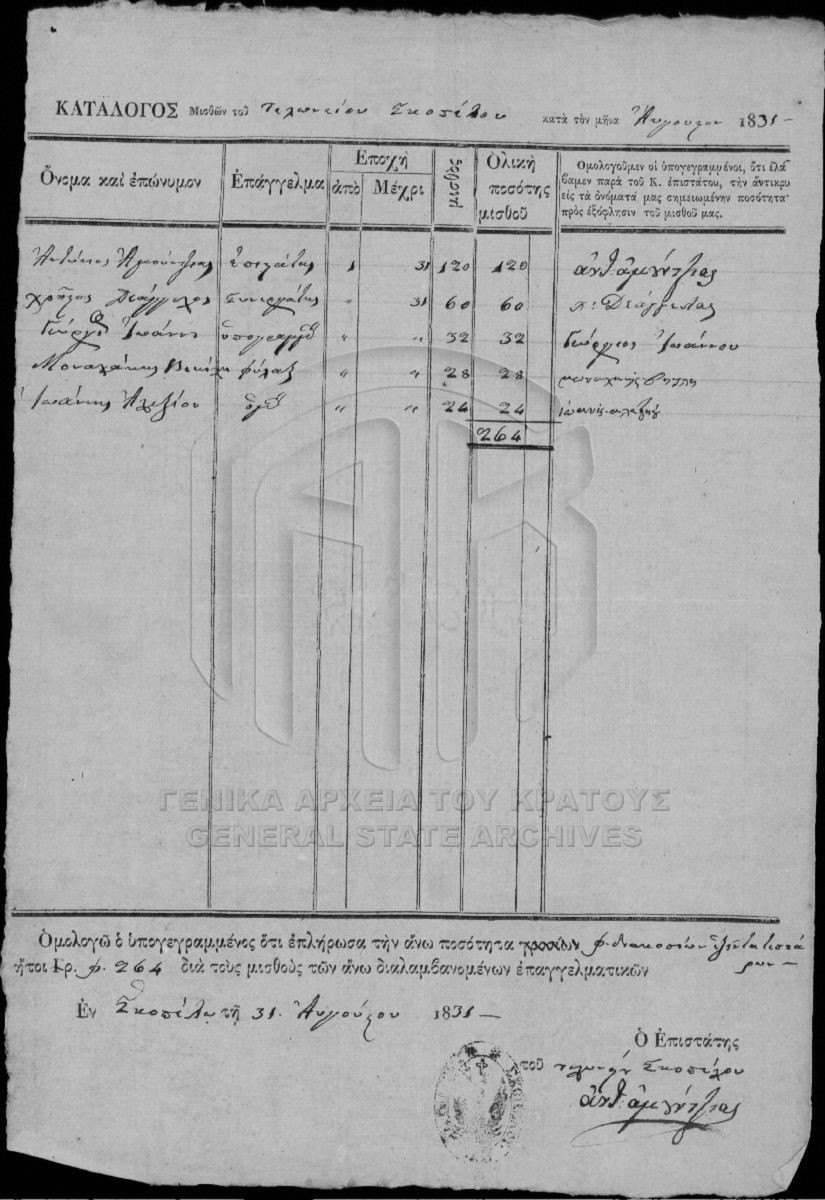 ΚΑΤΑΛΟΓΟΣ Μισθῶν τοῦ Τελωνείου Σκοπέλου κατὰ τὸν μῆνα Αὔγουστον 1831
Ὄνομα καὶ ἐπώνυμον Ἐπάγγελμα Ἐποχὴ ἀπὸ Μέχρι μισθὸς Ὁλικὴ ποσότης μισθοῦ
Ὁμολογοῦμεν οἱ ὑπογεγραμμένοι, ὅτι ἐλά
βαμεν παρὰ τοῦ Κ. ἐπιστάτου, τὴν ἄντικρυ
εἰς τὰ ὀνόματά μας σημειωμένην ποσότητα
πρὸς ἐξόφλησιν τοῦ μισθοῦ μας.
Ἀντώνιος Ἀμούντζιας ἐπιστάτης 1 31 120 120 ἀντ: ἀμούντζιας
Χρῆστος Συνεργάτης " 31 60 60
Γεώργιος Ἰωάννου ὑπογραμμ " " 32 32 Γεώργιος Ἰωάννου
φύλαξ " " 28 28
Ἰωάννης Ἀλεξίου " " 24 24
264
ΓΕΝΙΚΑ ΑΡΧΕΙΑ ΤΟΥ ΚΡΑΤΟΥΣ
GENERAL STATE ARCHIVES
Ὁμολογῶ ὁ ὑπογεγραμμένος ὅτι ἐπλήρωσα τὴν ἄνω ποσότητα γροσίων φ. διακοσίων ἑξῆντα τεσσά
ρων
ἤτοι Γρ. φ. 264 διὰ τοὺς μισθοὺς τῶν ἄνω διαλαμβανομένων ἐπαγγελματικῶν
Ἐν Σκοπέλῳ τῇ 31 Αὐγούστου 1831
Ὁ Ἐπιστάτης
τοῦ Σκοπέλου
ἀντ: ἀμούντζιας